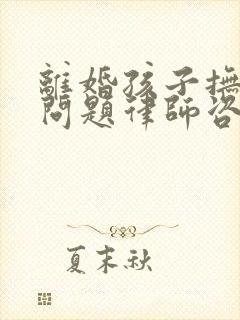 離婚孩子撫
問題律師咨
夏末秋